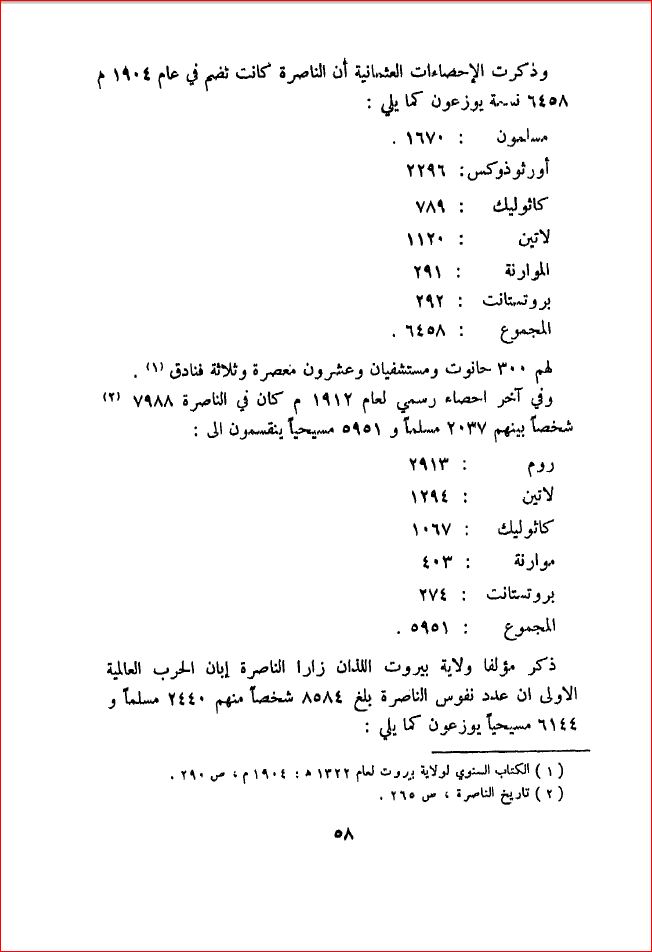 وذكرت الإحصاءات العثمانية أن الناصرة كانت تضم في عام ١٩٠٤ م
٦٤٥٨ نسمة يوزعون كما يلي :
مسلمون : ١٦٧٠ .
أورثوذوكس: ٢٢٩٦
كاثوليك : ٧٨٩
لاتين : ١١٢٠
الموارنة : ٢٩١
بروتستانت : ٢٩٢
المجموع : ٦٤٥٨ .
لهم ٣٠٠ حانوت ومستشفيان وعشرون معصرة وثلاثة فنادق (١) .
وفي آخر احصاء رسمي لعام ١٩١٢ م كان في الناصرة ٧٩٨٨ (٢)
شخصاً بينهم ٢٠٣٧ مسلماً و ٥٩٥١ مسيحياً ينقسمون الى :
روم : ٢٩١٣
لاتين : ١٢٩٤
كاثوليك : ١٠٦٧
موارنة : ٤٠٣
بروتستانت : ٢٧٤
المجموع : ٥٩٥١ .
ذكر مؤلفا ولاية بيروت اللذان زارا الناصرة إبان الحرب العالمية
الاولى ان عدد نفوس الناصرة بلغ ٨٥٨٤ شخصاً منهم ٢٤٤٠ مسلماً و
٦١٤٤ مسيحياً يوزعون كما يلي :
( ١ ) الكتاب السنوي لولاية بيروت لعام ١٣٢٢ ه : ١٩٠٤ م ، ص ٢٩٠ .
( ٢ ) تاريخ الناصرة ، ص ٢٦٥ .
٥٨